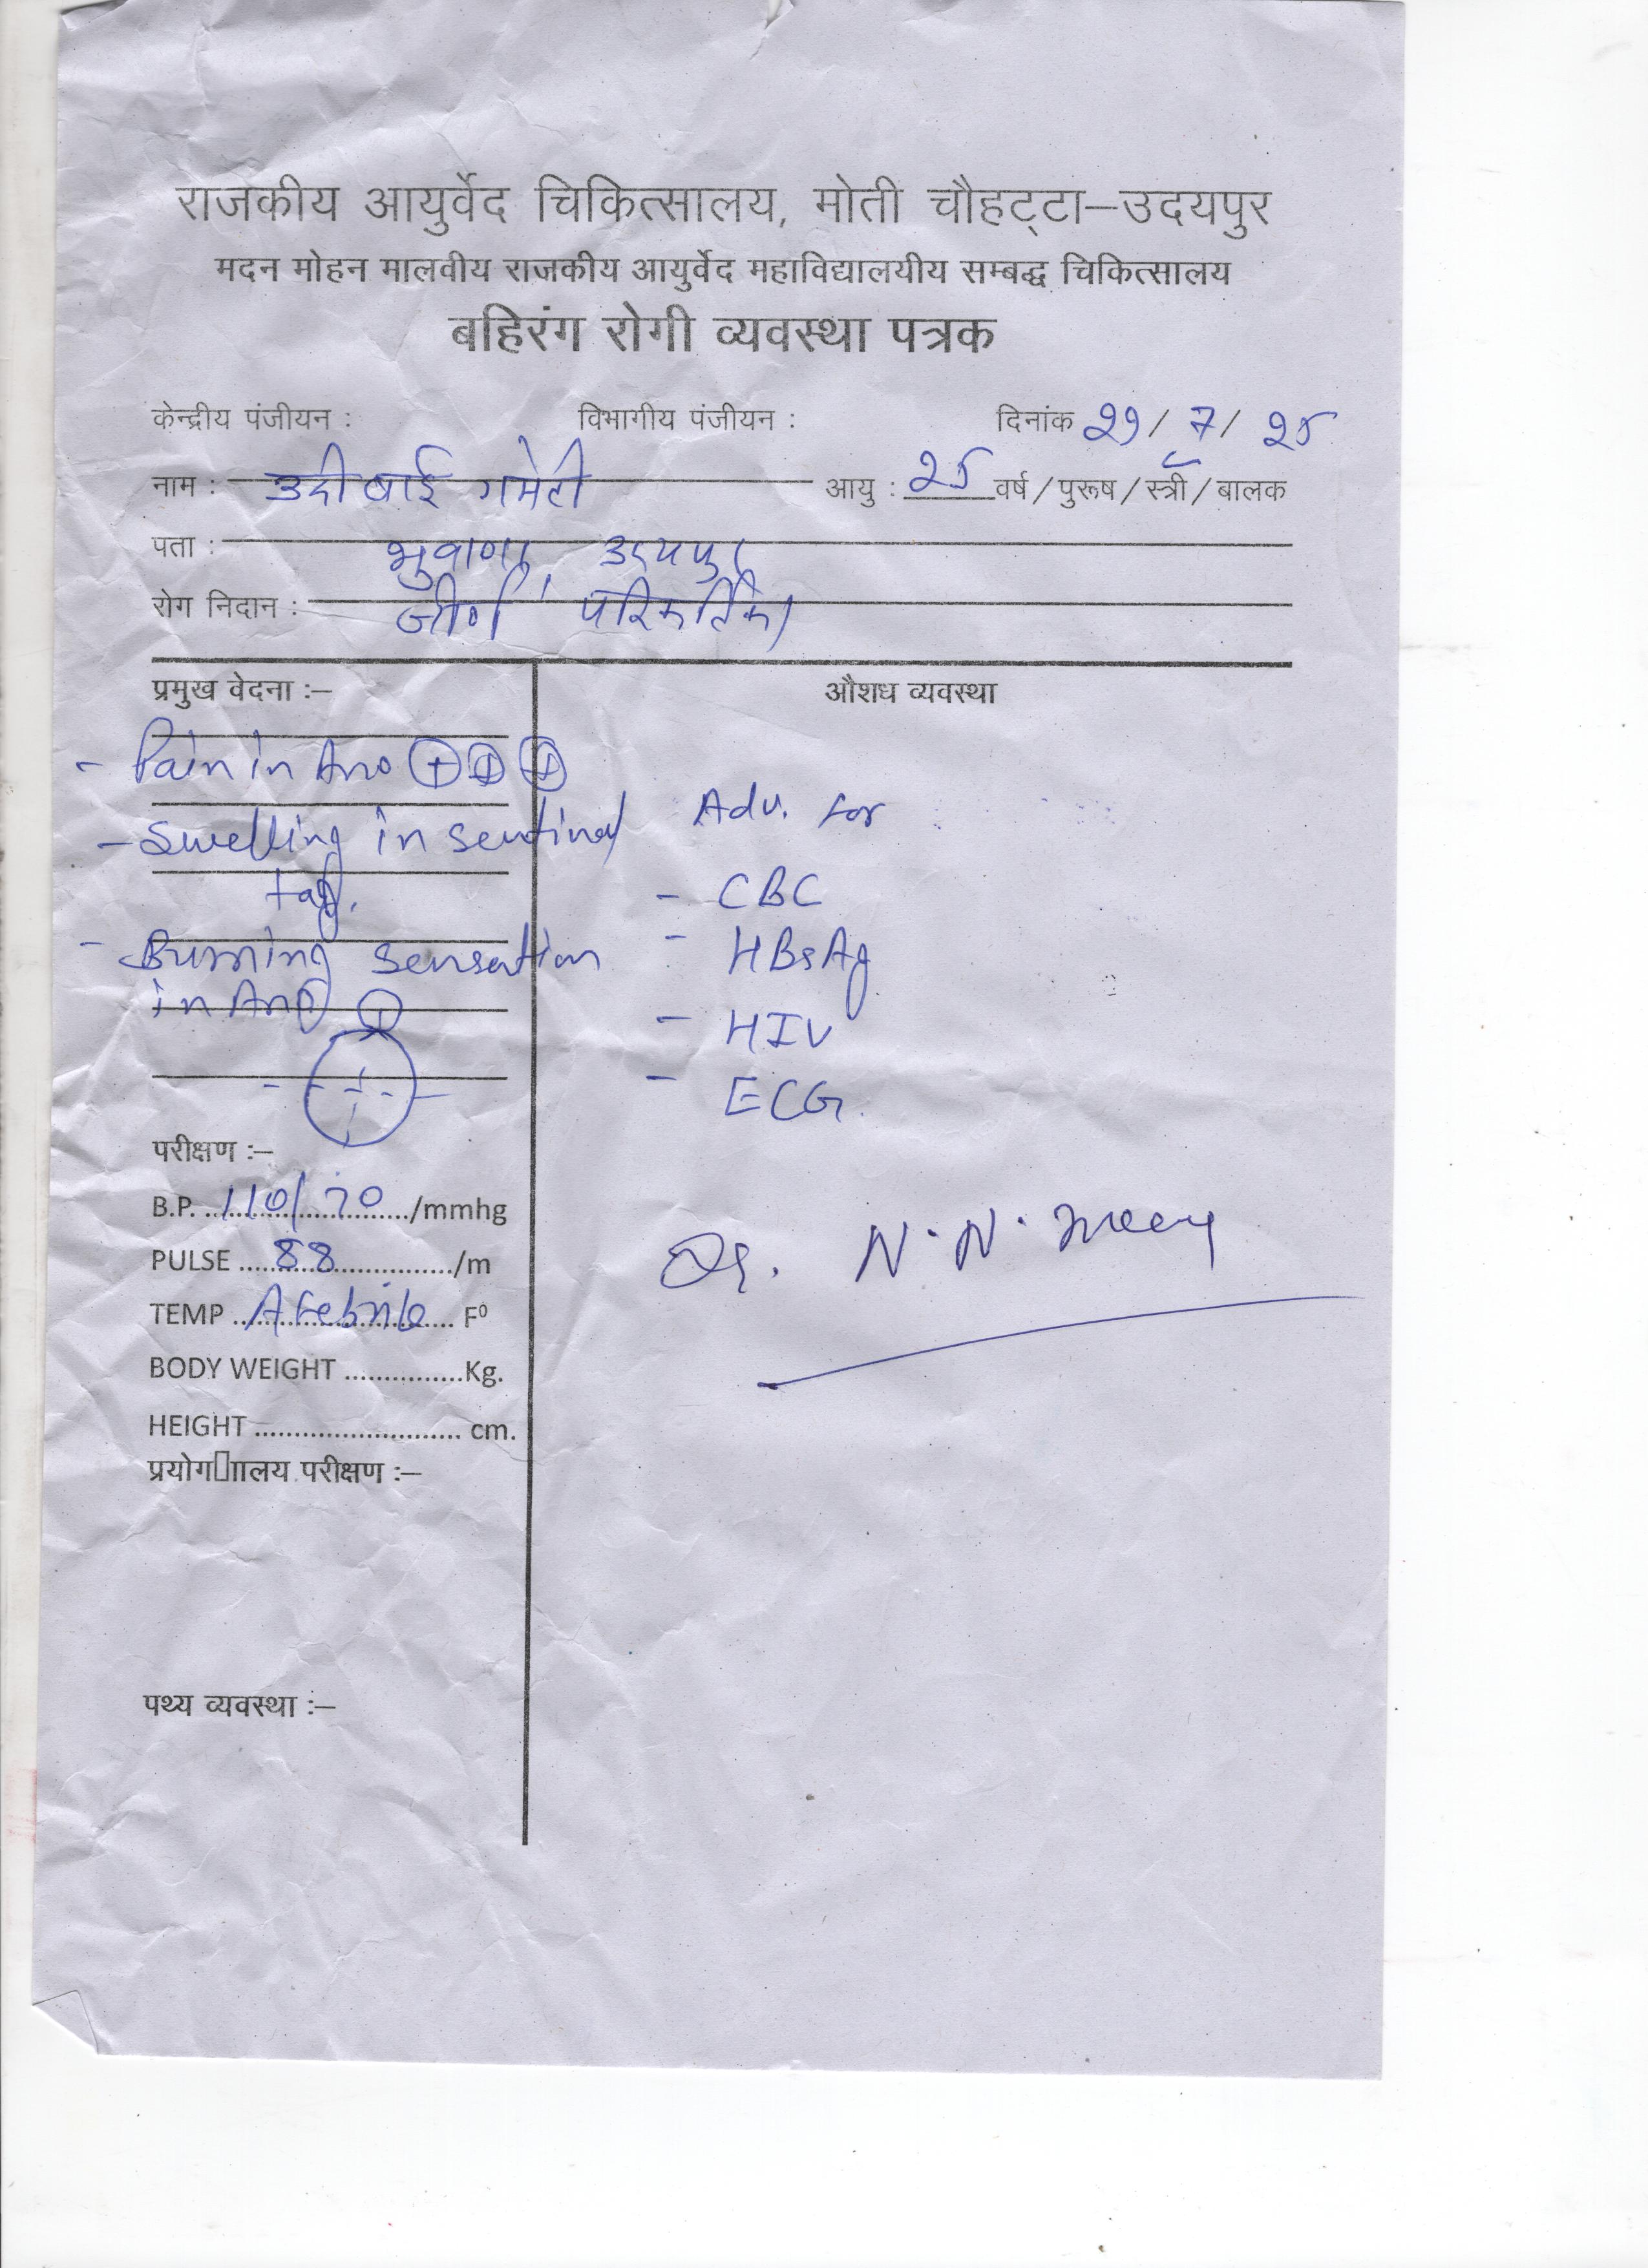 राजकीय आयुर्वेद चिकित्सालय, मोती चौहट्टा–उदयपुर
मदन मोहन मालवीय राजकीय आयुर्वेद महाविद्यालयीय सम्बद्ध चिकित्सालय
बहिरंग रोगी व्यवस्था पत्रक
केन्द्रीय पंजीयन : विभागीय पंजीयन : दिनांक 29/7/25
नाम : उदी बाई गमेती आयु : 25 वर्ष/पुरूष/स्त्री/बालक
पता : भुवाणा, उदयपुर
रोग निदान : जीर्ण परिकर्तिका
प्रमुख वेदना :– औशध व्यवस्था
- Pain in Ano + + +
Adv. for
- Swelling in sentinel
tag.
- CBC
- Burning sensation
- HBsAg
in Ano +
- HIV
- ECG.
परीक्षण :–
B.P. 110/70 /mmhg
Dr. N. N.
PULSE 88 /m
TEMP Afebrile F⁰
BODY WEIGHT ...............Kg.
HEIGHT .......................... cm.
प्रयोग▯ाालय परीक्षण :–
पथ्य व्यवस्था :–